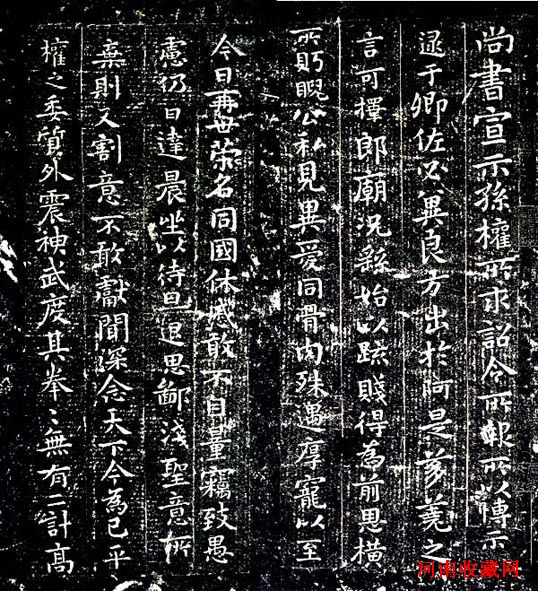 尚書宣示孫權所求詔令所報所以博示
逮于卿佐必異良方出於阿是芻蕘之
言可擇郎廟況繇始以疏賤得為前恩橫
所盻睨公私見異愛同骨肉殊遇厚寵以至
今日再世榮名同國休慼敢不自量竊致愚
慮仍日達晨坐以待旦退思鄙淺聖意所
棄則又割意不敢獻聞深念天下今為已平
權之委質外震神武度其拳〻無有二計高
河南收藏网